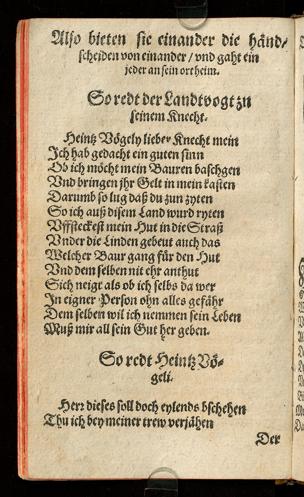 Also bieten sie einander die händ/
scheiden von einander / vnd gaht ein
jeder an sein ortheim.
So redt der Landtvogt zu
seinem Knecht.
Heintz Vögely lieber Knecht mein
Ich hab gedacht ein guten sinn
Ob ich möcht mein Bauren baschgen
Vnd bringen jhr Gelt in mein kasten
Darumb so lug daß du zun zyten
So ich auß disem Land wurd ryten
Vffsteckest mein Hut in die Straß
Vnder die Linden gebeut auch das
Welcher Baur gang für den Hut
Vnd dem selben nit ehr anthut
Sich neigt als ob ich selbs da wer
In eigner Person ohn alles gefähr
Dem selben wil ich nemmen sein Leben
Muß mir all sein Gut her geben.
So redt Heintz Vö-
geli.
Herr dieses soll doch eylends bschehen
Thu ich bey meiner trew verjähen
Der